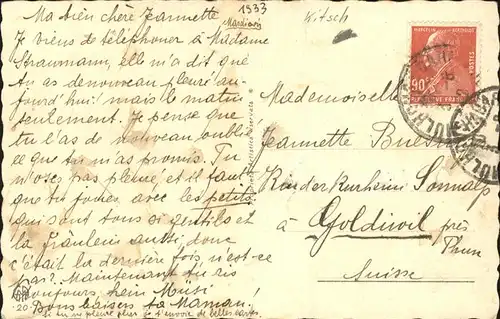 Ma bien chère Jeannette
1933
Mardi soir
Kitsch
Je viens de téléphoner à Madame
Straumann, elle m'a dit que
tu as de nouveau pleuré au-
jourd'hui! mais le matin
seulement. Je pense que
tu l'as de nouveau oubli-
ée que tu m'as promis. Tu
n'oses pas pleurer et il faut
que tu joues avec les petits
qui sont tous si gentils et
la fräulein aussi, donc
c'était la dernière fois, n'est-ce
pas? Maintenant tu ris
toujours, hein Müsi
Bons baisers ta Maman!
si tu ne pleure plus je t'envoie de belles cartes.
20
MARCELIN BERTHELOT
POSTES
90
Mademoiselle
Jeannette
Kinderkurheim Sonnalp
à Goldiwil près
Thun
Suisse